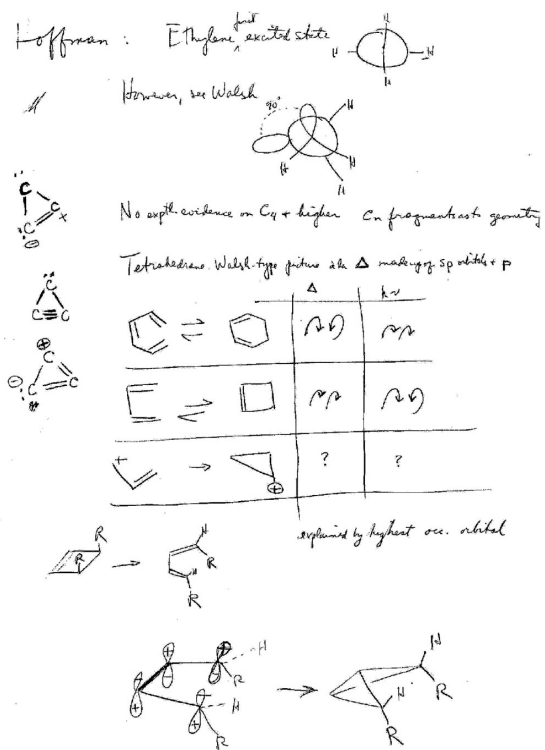 Hoffman : Ethylene first excited state
H H H H
However, see Walsh
90° H H H H
No exptl. evidence on C4 + higher Cn fragments as to geometry
Tetrahedrane. Walsh-type picture à la Δ made up of sp orbitals + p
C C C + ⊖
C C≡C
⊕ C C C ⊖
Δ hν
+ ⊕ ? ?
explained by highest occ. orbital
R R H R H R
+ − + + − + + − H R H R
H R H R